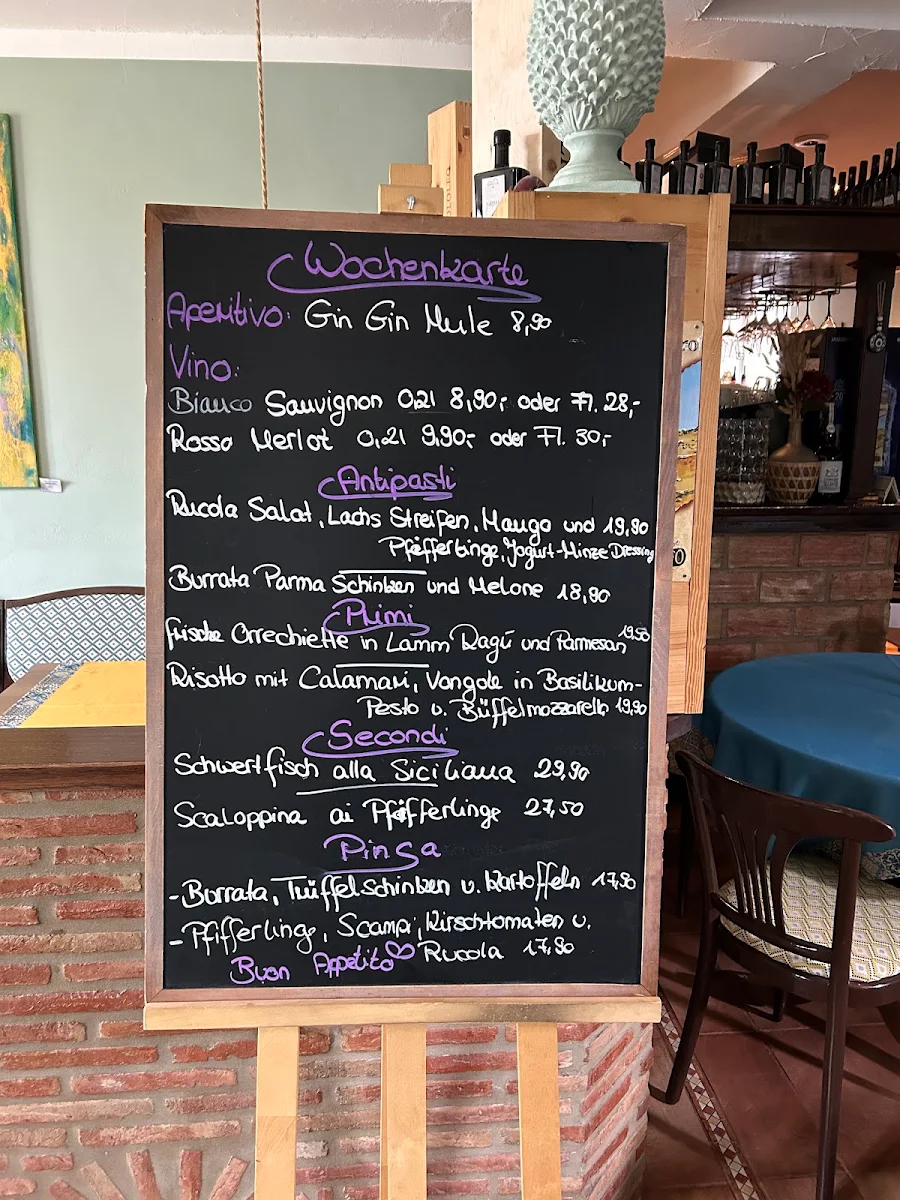 Wochenkarte
Aperitivo: Gin Gin Mule 8,90
Vino:
Bianco Sauvignon 0,2l 8,90,- oder Fl. 28,-
Rosso Merlot 0,2l 9,90,- oder Fl. 30,-
Antipasti
Rucola Salat, Lachs Streifen, Mango und 19,90
Pfifferlinge, Jogurt-Minze Dressing
Burrata Parma Schinken und Melone 18,90
Primi
frische Orrechiette in Lamm Ragú und Parmesan 19,50
Risotto mit Calamari, Vongole in Basilikum-
Pesto u. Büffelmozzarella 19,90
Secondi
Schwertfisch alla Siciliana 29,90
Scaloppina ai Pfifferlinge 27,50
Pinsa
- Borrata, Trüffelschinken u. Kartoffeln 17,90
- Pfifferlinge, Scampi, Kirschtomaten u.
Rucola 17,90
Buon Appetito